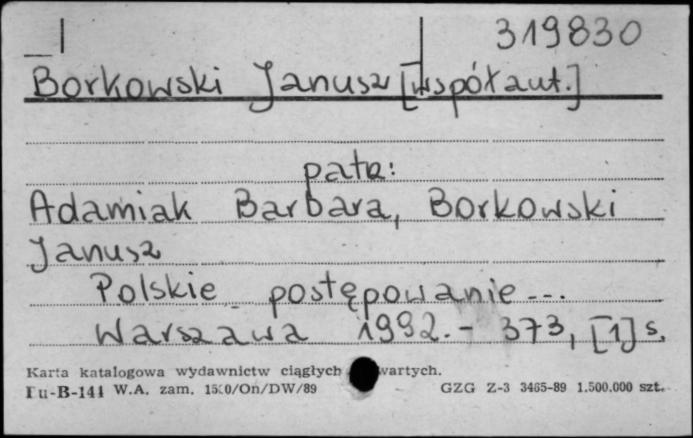 319830
Borkowski Janusz [współaut.]
patrz:
Adamiak Barbara, Borkowski
Janusz
Polskie postępowanie...
Warszawa 1992.- 373, [1] s.
Karta katalogowa wydawnictw ciągłych wartych.
Pu-B-141 W.A. zam. 1500/On/DW/89 GZG Z-3 3465-89 1.500.000 szt.